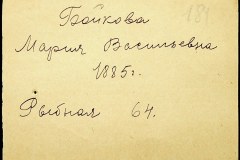 Бойкова
Мария Васильевна
1885г.
Рыбная 64.